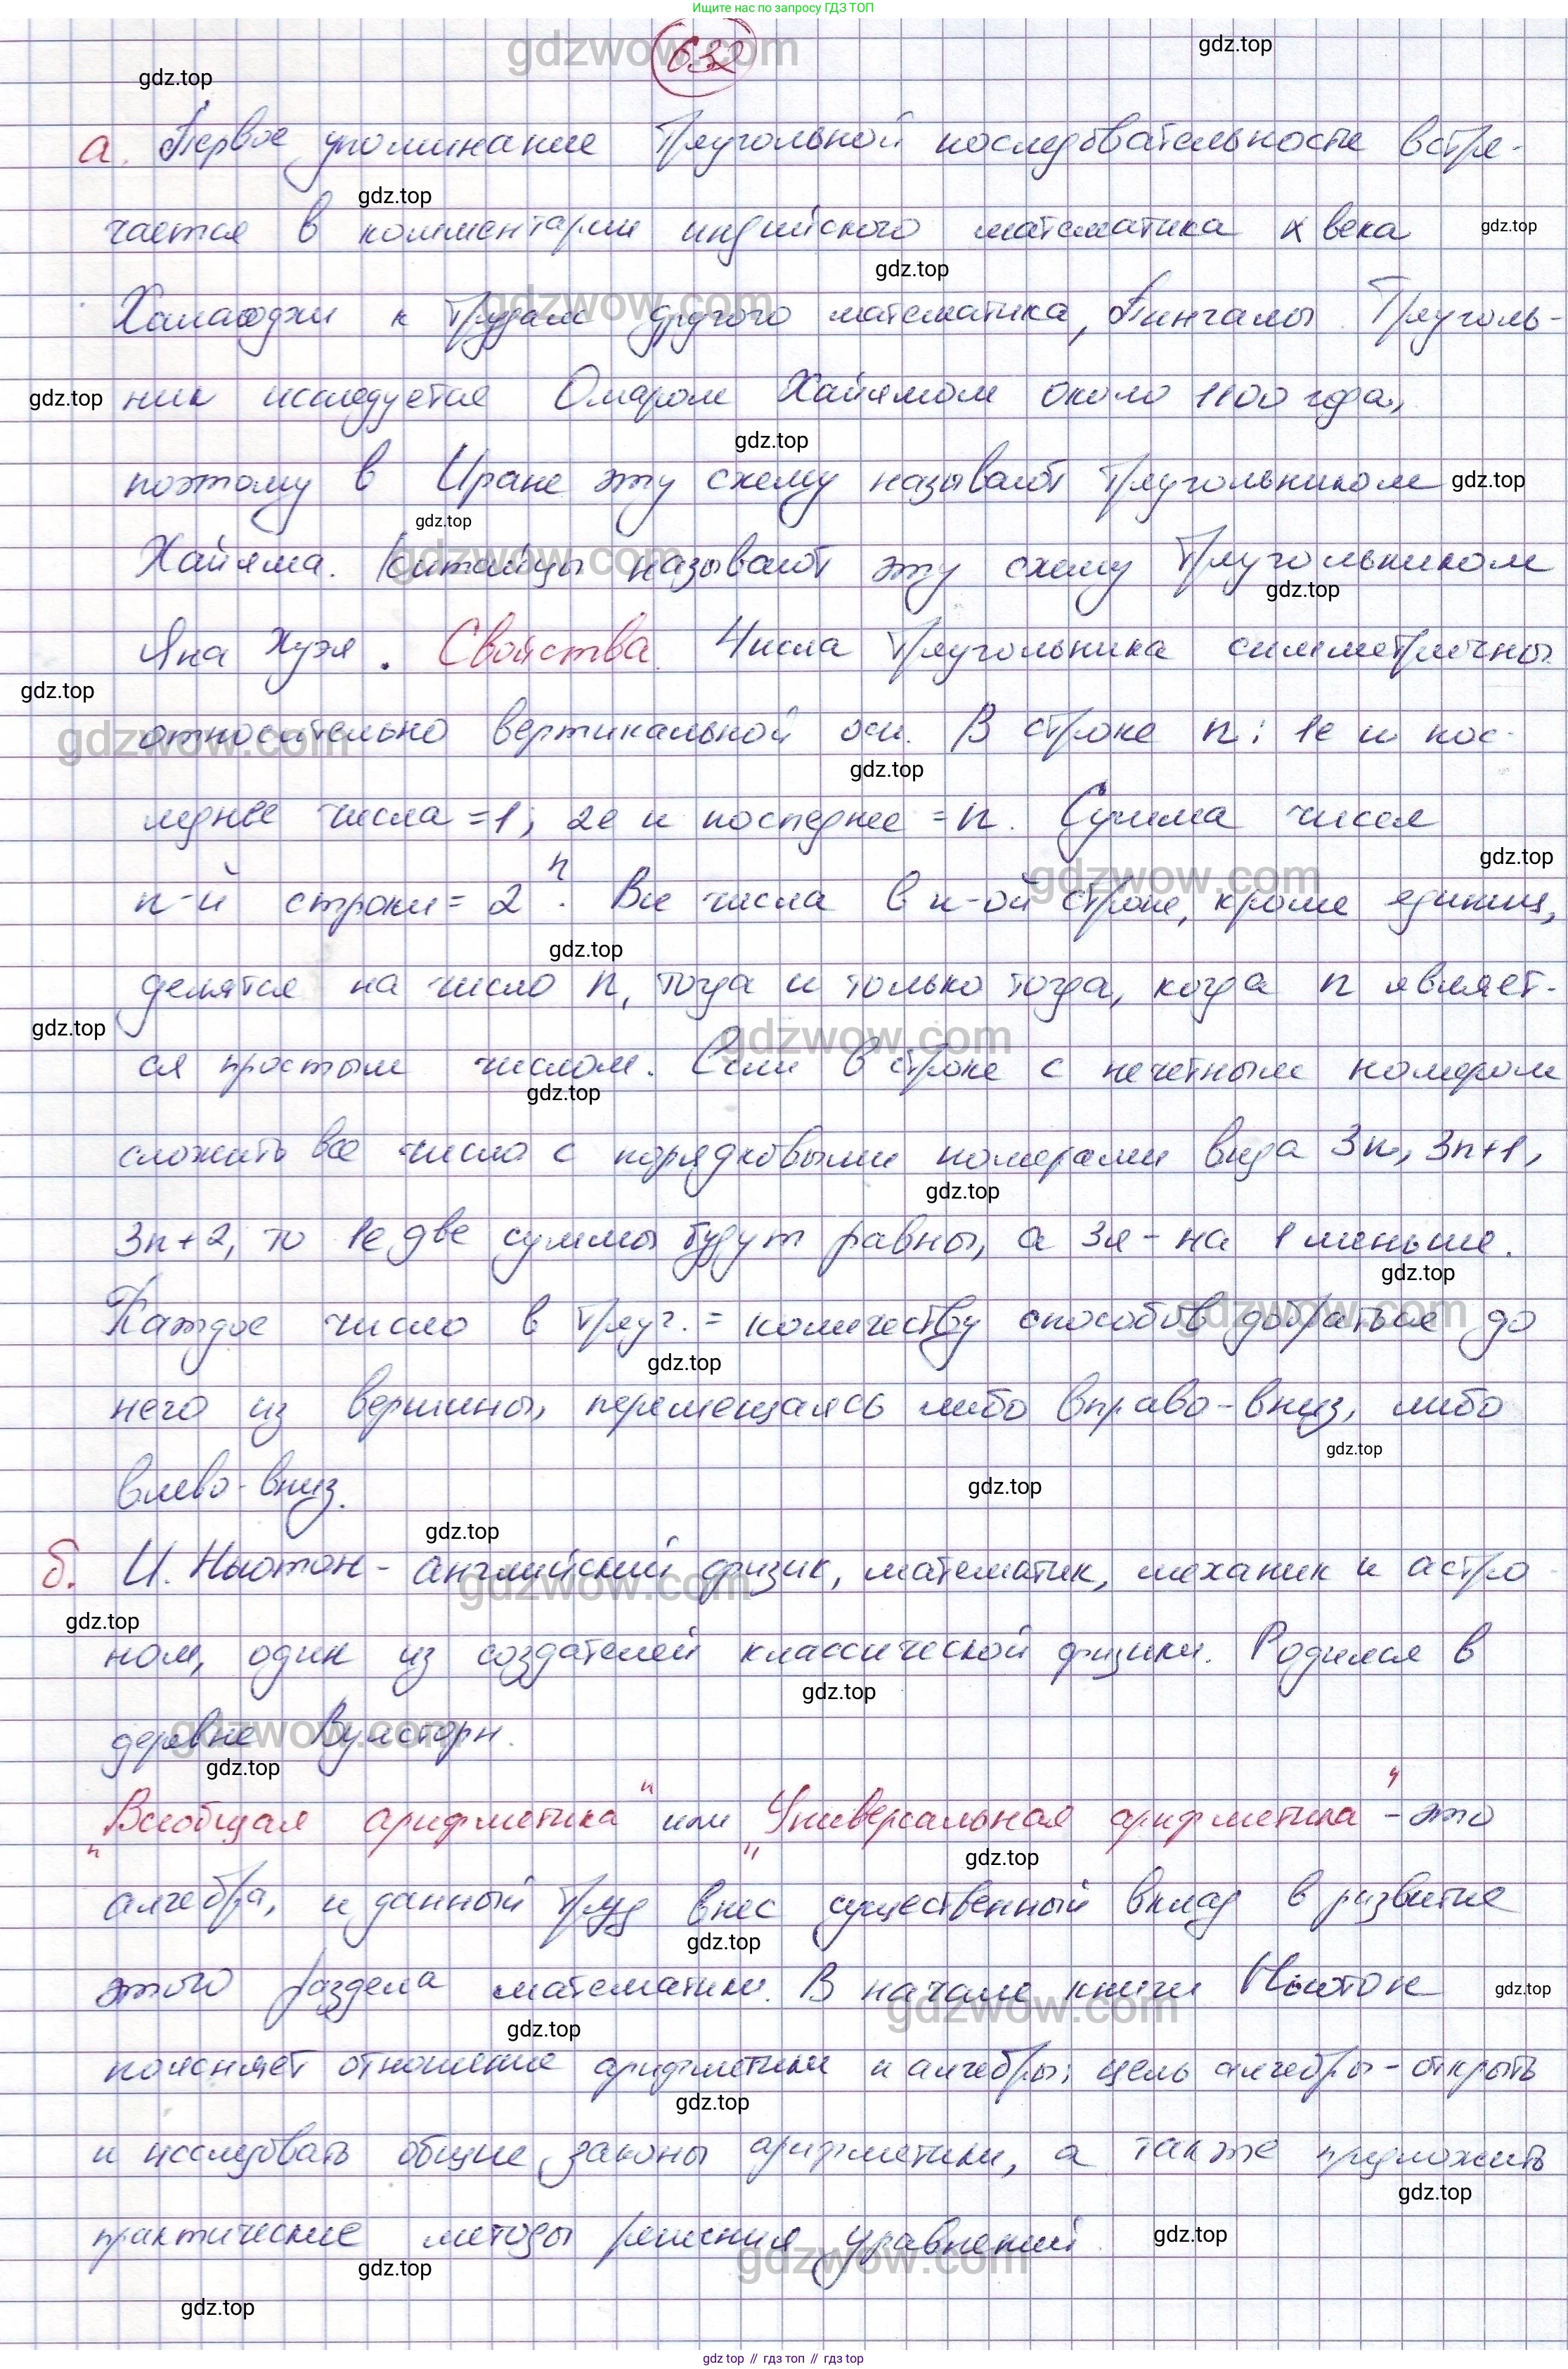 Ищите нас по запросу ГДЗ ТОП
632
а. Первое упоминание треугольной последовательности встре-
чается в комментарии индийского математика X века
Халаюджи к трудам другого математика, Пингалы. Треуголь-
ник исследуется Омаром Хайямом около 1100 года,
поэтому в Иране эту схему называют треугольником
Хайяма. Китайцы называют эту схему треугольником
Яна Хуэя. Свойства. Числа треугольника симметричны
относительно вертикальной оси. В строке n: 1е и пос-
леднее числа =1; 2е и последнее =n. Сумма чисел
n-й строки= 2ⁿ. Все числа в n-ой строке, кроме единиц,
делятся на число n, тогда и только тогда, когда n являет-
ся простым числом. Если в строке с нечетным номером
сложить все число с порядковыми номерами вида 3n, 3n+1,
3n+2, то 1е две суммы будут равны, а 3я - на 1 меньше.
Каждое число в треуг. = количеству способов добраться до
него из вершины, перемещаясь либо вправо-вниз, либо
влево-вниз.
б. И. Ньютон - английский физик, математик, механик и астро
ном, один из создателей классической физики. Родился в
деревне Вулсторн.
„Всеобщая арифметика" или „Универсальная арифметика" - это
алгебра, и данный труд внес существенный вклад в развитие
этого раздела математики. В начале книги Ньютон
поясняет отношение арифметики и алгебры: цель алгебры - открыть
и исследовать общие законы арифметики, а также предложить
практические методы решения уравнений.
gdz.top // гдз топ // гдз top